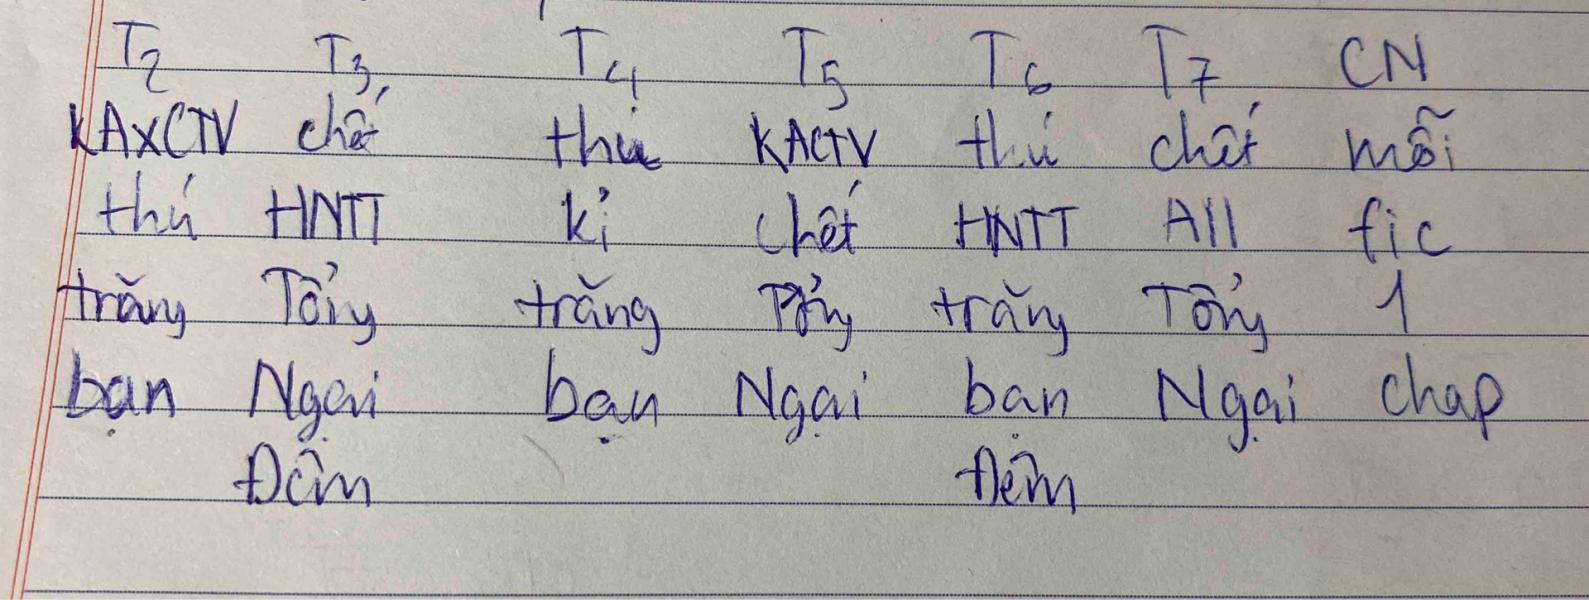 T2 T3 T4 T5 T6 T7 CN
KAXCTV chất thú KACTV thú chất mỗi
thú HNTT kỉ chết HNTT All fic
trăng Tổng trăng Tổng trăng Tổng 1
bạn Ngại bạn Ngại bạn Ngại chap
Đêm Đêm